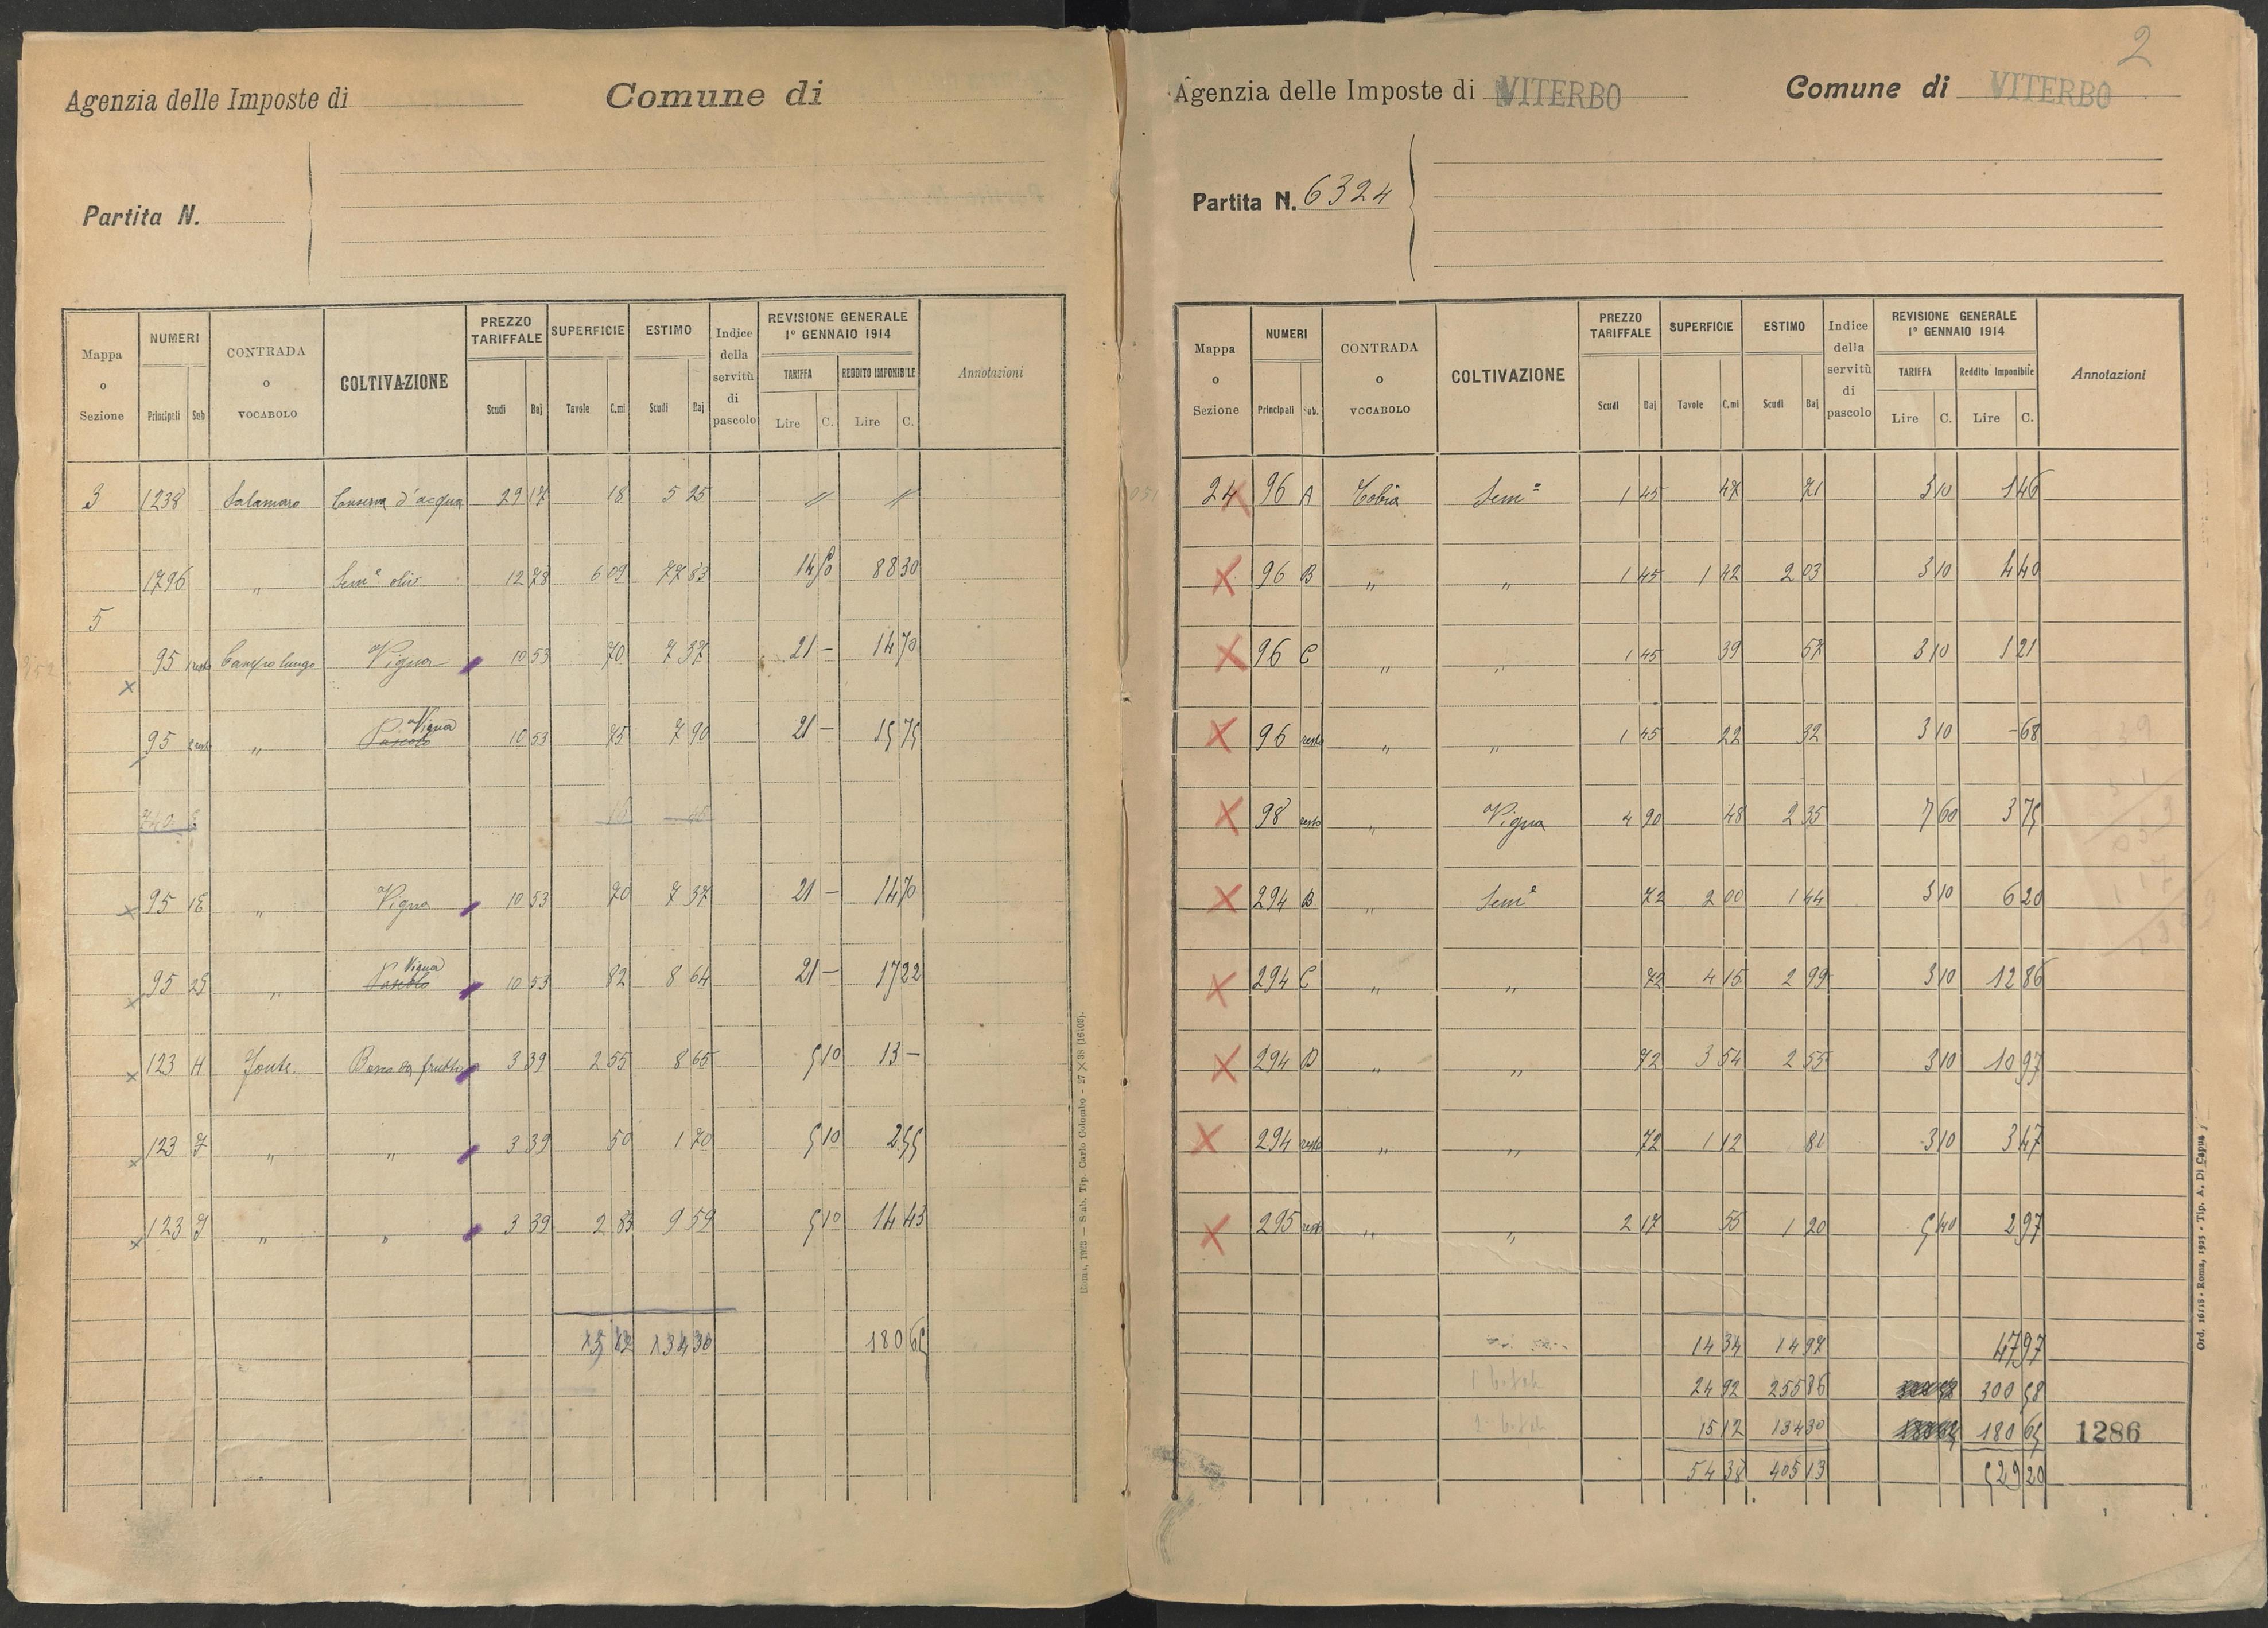 Agenzia delle Imposte di Comune di
Partita N.
Mappa o Sezione NUMERI CONTRADA o VOCABOLO COLTIVAZIONE PREZZO TARIFFALE SUPERFICIE ESTIMO Indice della servitù di pascolo REVISIONE GENERALE 1° GENNAIO 1914 Annotazioni
Principali Sub Scudi Baj Tavole C.mi Scudi Baj TARIFFA REDDITO IMPONIBILE
Lire C. Lire C.
3 1238 Salamaro Conserva d'acqua 29 17 18 5 25 // //
1796 " Sem° oliv 12 78 6 09 77 83 14 50 88 30
5
95 1 resto Campo lungo Vigna 10 53 70 7 37 21 — 14 70
95 2 resto " Pascolo Vigna 10 53 75 7 90 21 — 15 75
95 1E " Vigna 10 53 70 7 37 21 — 14 70
95 25 " Pascolo Vigna 10 53 82 8 64 21 — 17 22
123 H Fonte. Bosco da frutto 3 39 2 55 8 65 5 10 13 —
123 " " 3 39 50 1 70 5 10 2 55
123 " " 3 39 2 83 9 59 5 10 14 43
15 12 134 30 180 65
Roma, 1923 — Stab. Tip. Carlo Colombo - 27 X 38 (16103).
2
Agenzia delle Imposte di VITERBO Comune di VITERBO
Partita N. 6324
Mappa o Sezione NUMERI CONTRADA o VOCABOLO COLTIVAZIONE PREZZO TARIFFALE SUPERFICIE ESTIMO Indice della servitù di pascolo REVISIONE GENERALE 1° GENNAIO 1914 Annotazioni
Principali Sub. Scudi Baj Tavole C.mi Scudi Baj TARIFFA Reddito Imponibile
Lire C. Lire C.
24 96 A Tobia Sem° 1 45 47 71 3 10 1 46
96 B " " 1 45 1 42 2 03 3 10 4 40
96 C " " 1 45 39 57 3 10 1 21
96 resto " " 1 45 22 32 3 10 - 68
98 resto " Vigna 4 90 48 2 35 7 60 3 75
294 B " Sem° 72 2 00 1 44 3 10 6 20
294 C " " 72 4 15 2 99 3 10 12 86
294 D " " 72 3 54 2 55 3 10 10 97
294 resto " " 72 1 12 81 3 10 3 47
295 resto " " 2 17 55 1 20 5 40 2 97
14 34 14 97 47 97
24 92 255 86 300 58
15 12 134 30 180 65 1286
54 38 405 13 529 20
Ord. 16118 - Roma, 1925 - Tip. A. Di Capua